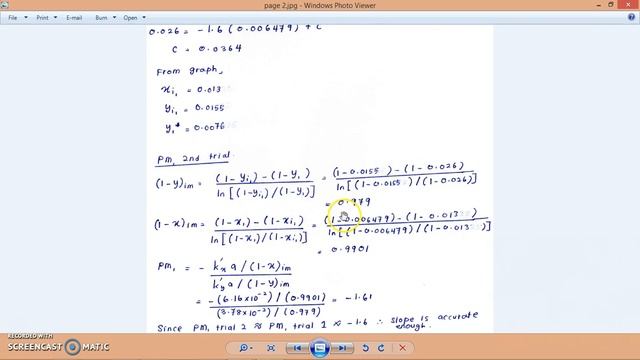 page 2.jpg - Windows Photo Viewer
File Print Burn Open
0.026 = -1.6 (0.006479) + C
C = 0.0364
From graph,
xi, = 0.013
yi, = 0.0155
y,* = 0.0076
PM, 2nd trial.
(1-y)im = (1-yi,) - (1-y,) / ln[(1-yi,)/(1-y,)] = (1-0.0155) - (1-0.026) / ln[(1-0.0155)/(1-0.026)]
= 0.979
(1-x)im = (1-x,) - (1-xi,) / ln[(1-x,)/(1-xi,)] = (1-0.006479) - (1-0.013) / ln[(1-0.006479)/(1-0.013)]
= 0.9901
PM, = - k'x a / (1-x)im / k'y a / (1-y)im
= -(6.16×10⁻²) / (0.9901) / (3.78×10⁻²) / (0.979) = -1.61
Since PM, trial 2 ≈ PM, trial 1 ≈ -1.6 ∴ slope is accurate enough.
RECORDED WITH
SCREENCAST MATIC